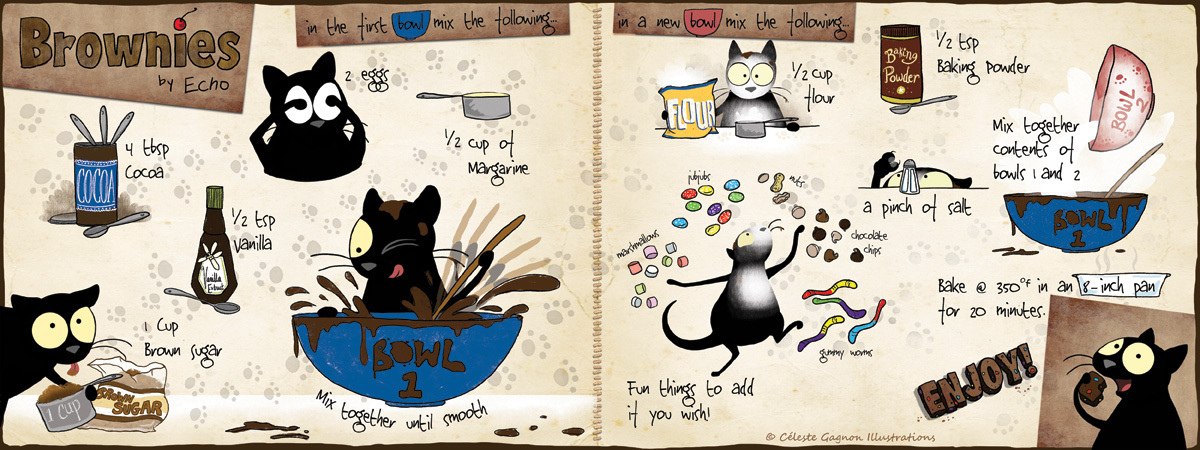 Brownies
by Echo
in the first bowl mix the following...
4 tbsp
Cocoa
COCOA
2 eggs
1/2 cup of
Margarine
1/2 tsp
Vanilla
Vanilla
Extract
1 Cup
Brown sugar
1 CUP
BROWN
SUGAR
BOWL
1
Mix together until smooth
in a new bowl mix the following...
FLOUR
1/2 cup
flour
Baking
Powder
1/2 tsp
Baking Powder
a pinch of salt
BOWL
2
Mix together
contents of
bowls 1 and 2
BOWL
1
jubjubs
nuts
marshmallows
chocolate
chips
gummy worms
Fun things to add
if you wish!
Bake @ 350°F in an 8-inch pan
for 20 minutes.
ENJOY!
© Céleste Gagnon Illustrations